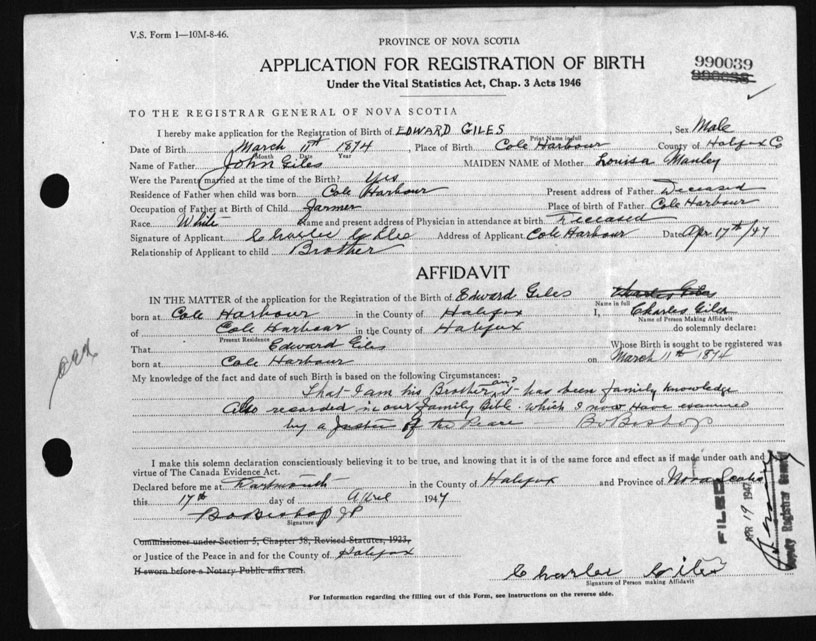 V.S. Form 1—10M-8-46.
PROVINCE OF NOVA SCOTIA
APPLICATION FOR REGISTRATION OF BIRTH
Under the Vital Statistics Act, Chap. 3 Acts 1946
990039
TO THE REGISTRAR GENERAL OF NOVA SCOTIA
I hereby make application for the Registration of Birth of EDWARD GILES, Sex Male
Print Name in full
Date of Birth March 11th 1874, Place of Birth Cole Harbour County of Halifax Co
Month Date Year
Name of Father John Giles MAIDEN NAME of Mother Louisa Manley
Were the Parents married at the time of Birth? Yes
Residence of Father when child was born Cole Harbour Present address of Father Deceased
Occupation of Father at Birth of Child Farmer Place of birth of Father Cole Harbour
Race White Name and present address of Physician in attendance at birth Deceased
Signature of Applicant Charles Giles Address of Applicant Cole Harbour Date Apr 17th/47
Relationship of Applicant to child Brother
AFFIDAVIT
IN THE MATTER of the application for the Registration of Birth of Edward Giles Charles Giles
Name in full
born at Cole Harbour in the County of Halifax I, Charles Giles
Name of Person Making Affidavit
of Cole Harbour in the County of Halifax do solemnly declare:
Present Residence
That Edward Giles Whose Birth is sought to be registered was
born at Cole Harbour on March 11th 1874
My knowledge of the fact and date of such Birth is based on the following Circumstances:
That I am his Brother and it has been family knowledge
Also recorded in our family Bible which I now have examined
by a Justice of the Peace — Bo Bishop
I make this solemn declaration conscientiously believing it to be true, and knowing that it is of the same force and effect as if made under oath and
virtue of The Canada Evidence Act.
Declared before me at Dartmouth in the County of Halifax and Province of Nova Scotia
this 17th day of April 1947
Bo Bishop JP
Signature
Commissioner under Section 5, Chapter 38, Revised Statutes, 1923,
or Justice of the Peace in and for the County of Halifax
If sworn before a Notary Public affix seal.
Charles Giles
Signature of Person making Affidavit
For Information regarding the filling out of this Form, see instructions on the reverse side.
FILED
APR 19 1947
Deputy Registrar General